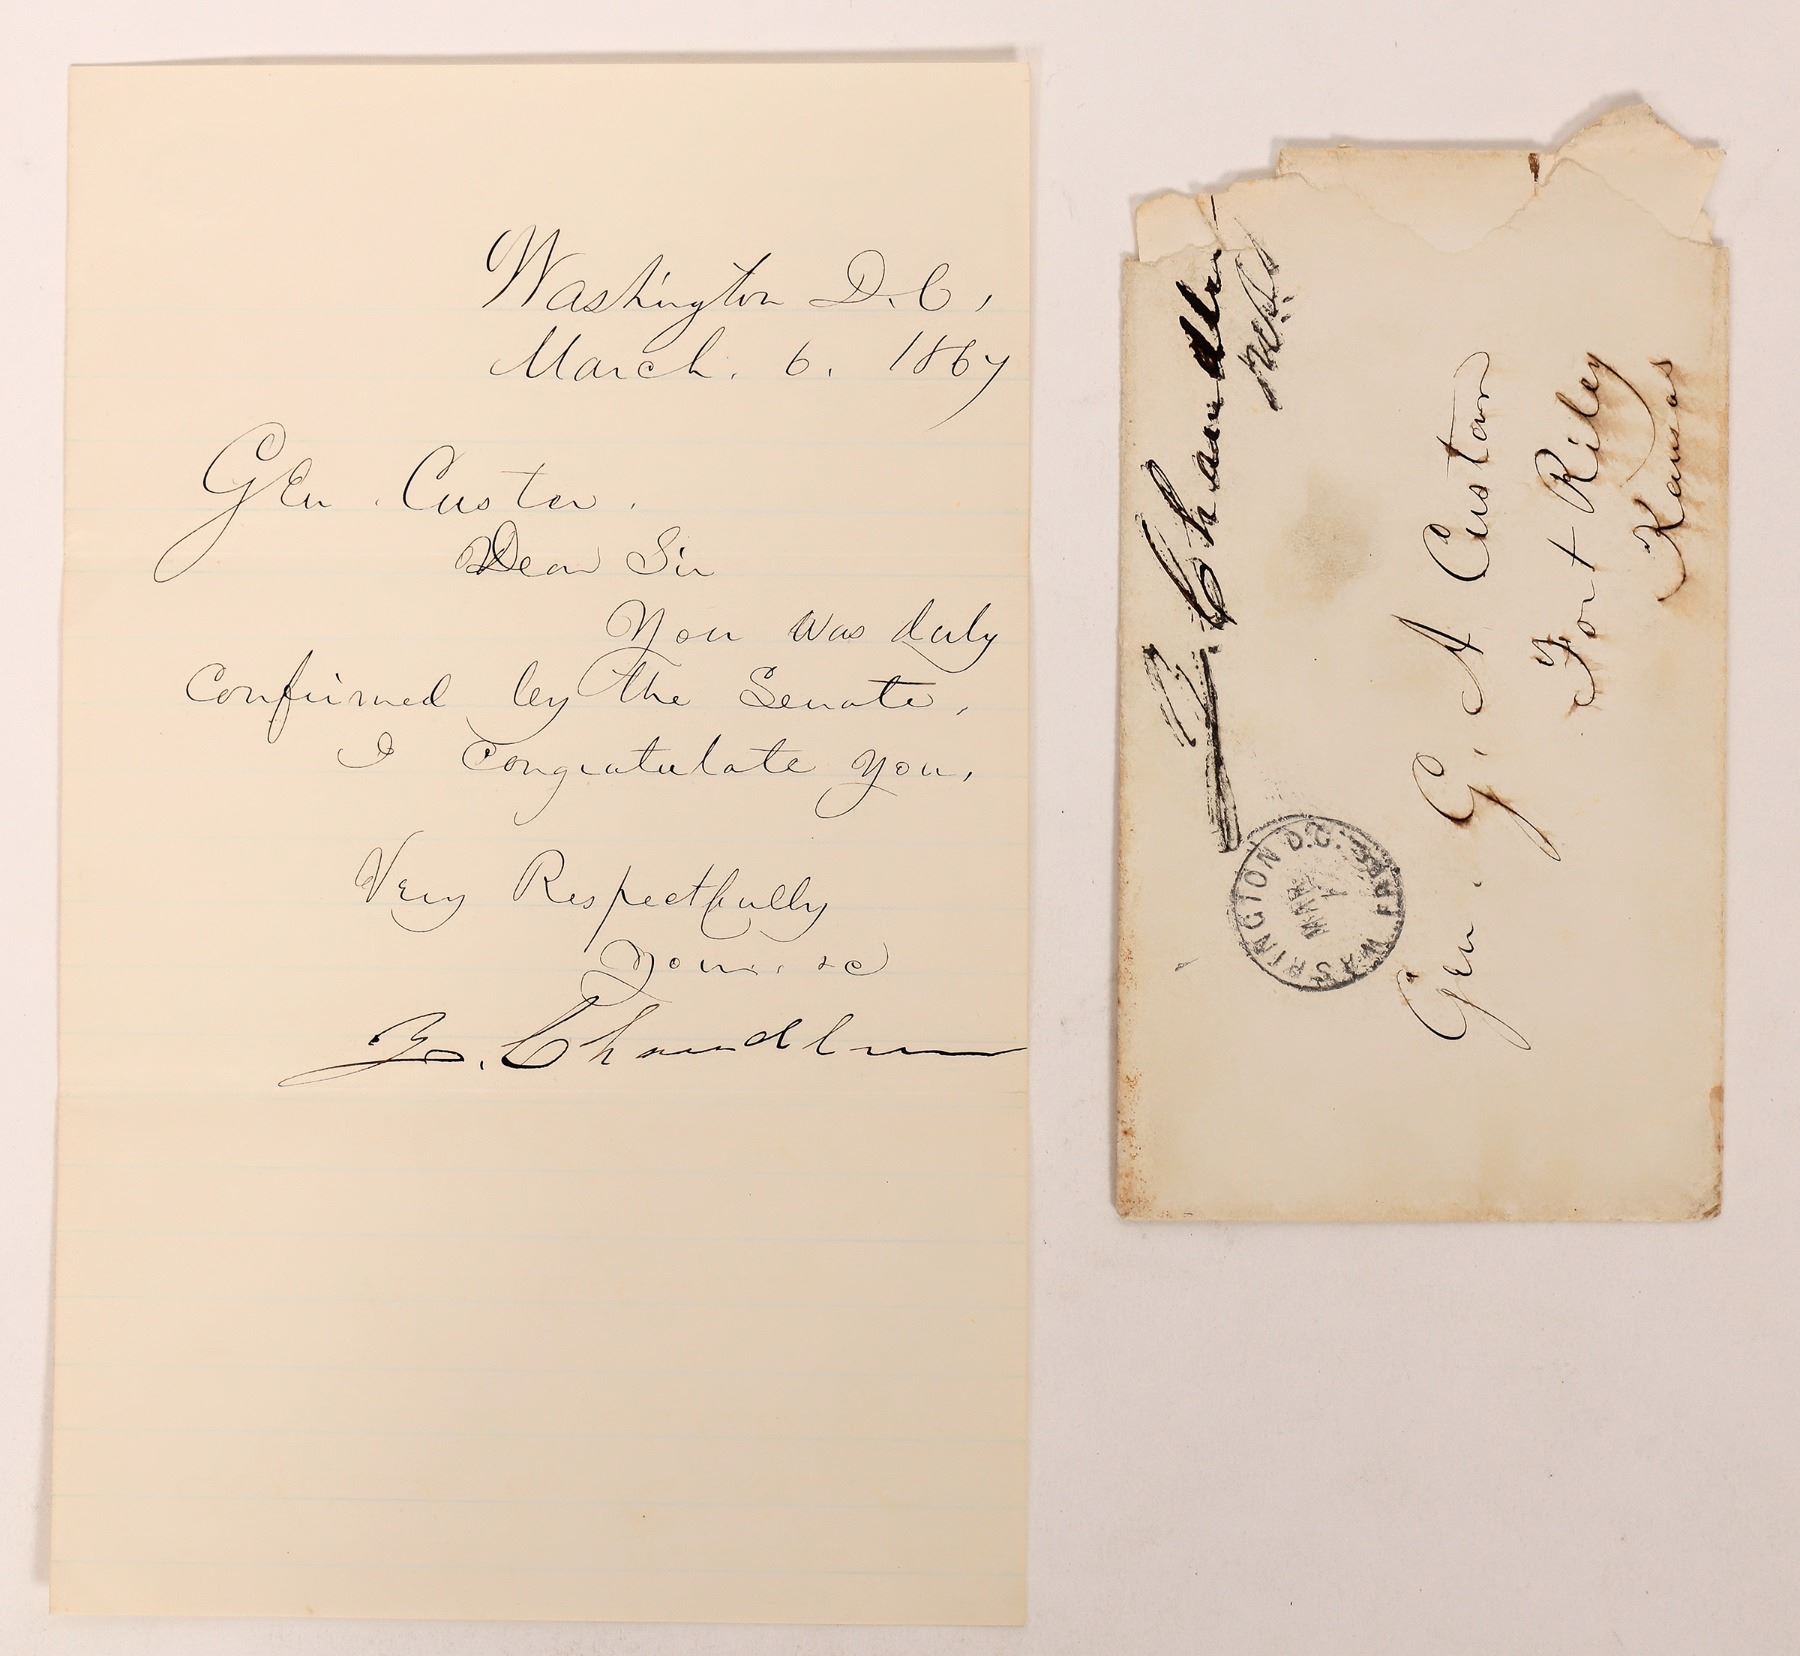 Washington D.C,
March. 6. 1867
Gen. Custer.
Dear Sir
You was duly
confirmed by the Senate,
I congratulate you,
Very Respectfully
Yours. &c
Z. Chandler
Z. Chandler
U.S.S.
WASHINGTON D.C. FREE
MAR
7
Gen. G. A Custer
Fort Riley
Kansas